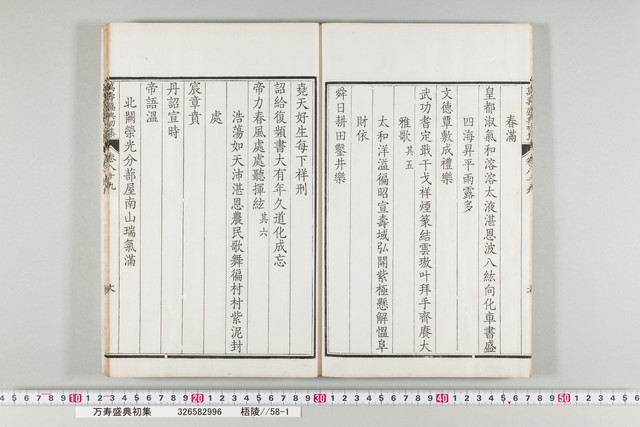 春滿
皇都淑氣和溶溶太液湛恩波八紘向化車書盛
四海昇平雨露多
文德覃敷成禮樂
武功耆定戢干戈祥煙篆結雲璈叶拜手齊賡大
雅歌其五
太和洋溢徧昭宣壽域弘開紫極懸解慍阜
財依
舜日耕田鑿井樂
堯天好生每下祥刑
詔給復頻書大有年久道化成忘
帝力春風處處聽揮絃其六
浩蕩如天沛湛恩農民歌舞徧村村紫泥封
處
宸章賁
丹詔宣時
帝語溫
北闕榮光分蔀屋南山瑞氣滿
10 20 30 40 50
万寿盛典初集 326582996 梧陵//58-1